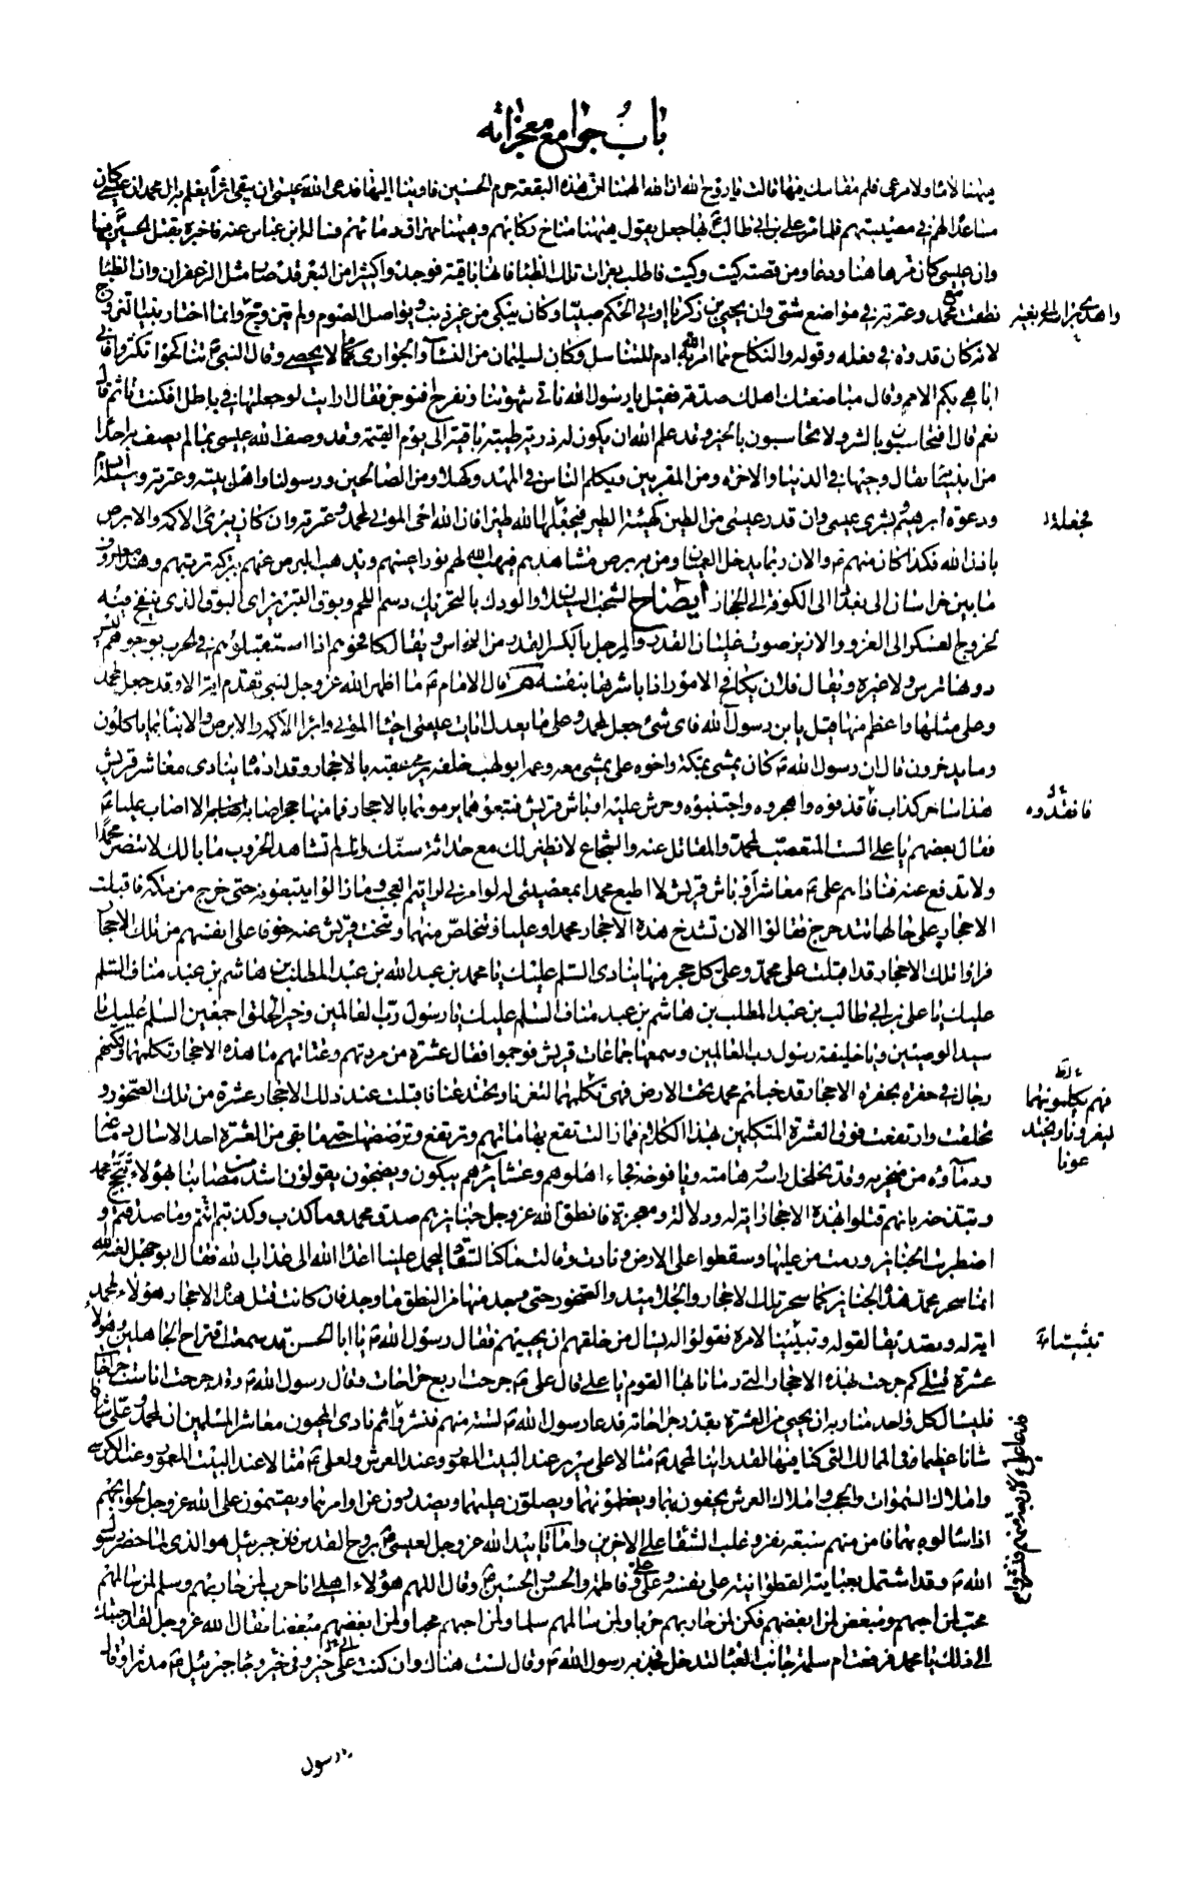 باب جوامع معجزاته
بينها لا ماء ولا مرعى فلم مقامك فيها قالت يا روح الله ان الله الهمنا ان هذه البقعة حرم الحسين فاوينا اليها فدعى الله عيسى ان يبقى اثرا يعلم به ال محمد ان عيسى كان
مساعدا لهم في مصيبتهم فلما مر علي بن ابي طالب بها جعل يقول ههنا مناخ ركابهم وههنا مهراق دمائهم فساله ابن عباس عنه فاخبره بقتل الحسين فيها
وان عيسى كان مر ها هنا ودعا ومن قصته كيت وكيت فاطلب بعرات تلك الظبا فانها باقية فوجدوا كثيرا من البعر قد صار مثل الزعفران وانا لظبا
نطقت مع محمد وعترته في مواضع شتى وان يحيى بن زكريا اوتي الحكم صبيا وكان يبكي من غير ذنب ويواصل الصوم ولم يتزوج وانما اختار نبينا التزوج
لانه كان قدوة في فعله وقوله والنكاح مما امر الله به ادم للتناسل وكان لسليمان من النساء والجواري ما لا يحصى وقال النبي تناكحوا تكثروا فاني
اباهي بكم الامم وقال مباضعتك اهلك صدقة فقيل يا رسول الله ناتي شهوتنا ونفرح افنوجر فقال ارايت لو جعلتها في باطل افكنت تاثم قال
نعم قال افتحاسبون بالشر ولا تحاسبون بالخير وقد علم الله ان يكون له ذرية طيبة باقية الى يوم القيمة وقد وصف الله عيسى بما لم يصف به احدا
من انبيائه فقال وجيها في الدنيا والاخرة ومن المقربين ويكلم الناس في المهد وكهلا ومن الصالحين ورسولنا واهل بيته وعترته وسيلة ادم
ودعوة ابرهيم وبشرى عيسى وان قدر عيسى من الطين كهيئة الطير فيجعلها الله طيرا فان الله احى الموتى لمحمد وعترته وان كان يبرئ الاكمه والابرص
باذن الله فكذا كان منهم والان ربما يدخل العميان ومن به برص مشاهدهم فيهب الله لهم نور اعينهم ويذهب البرص عنهم ببركة تربتهم وهذا معروف
ما بين خراسان الى بغداد الى الكوفة الى الحجاز ايضاح الشخب السيلان والودك بالتحريك دسم اللحم وبوق التبريز اي البوق الذي ينفخ فيه
لخروج العسكر الى الغزو والازيز صوت غليان القدر والمرجل بالكسر القدر من النحاس ويقال كافحوهم اذا استقبلوهم في الحرب بوجوههم ليس
دونها ترس ولا غيره ويقال فلان يكافح الامور اذا باشرها بنفسه م قال الامام ما اظهر الله عز وجل لنبي تقدم اية الا وقد جعل لمحمد
وعلي مثلها واعظم منها قيل يا بن رسول الله فاي شيء جعل لمحمد وعلي ما يعدل ايات عيسى احياء الموتى وابراء الاكمه والابرص والانباء بما ياكلون
وما يدخرون قال ان رسول الله كان يمشي بمكة واخوه علي يمشي معه وعمه ابو لهب خلفه يرمي عقبه بالاحجار وقد ادماه ينادي معاشر قريش
هذا ساحر كذاب فاقذفوه واهجروه واجتنبوه وحرش عليه اوباش قريش فتبعوهما يرمونهما بالاحجار فما منها حجر اصابه الا اصاب عليا
فقال بعضهم يا علي الست المتعصب لمحمد والمقاتل عنه والشجاع لا نظير لك مع حداثة سنك وانك لم تشاهد الحروب ما بالك لا تنصر محمدا
ولا تدفع عنه فناداهم علي معاشر اوباش قريش لا اطيع محمدا بمعصيتي له لو امرني لرايتم العجب وما زالوا يتبعونه حتى خرج من مكة فاقبلت
الاحجار على حالها تتدحرج فقالوا الان تشدخ هذه الاحجار محمدا وعليا ونتخلص منهما وتنحت قريش عنه خوفا على انفسهم من تلك الاحجار
فراوا تلك الاحجار قد اقبلت على محمد وعلي كل حجر منها ينادي السلم عليك يا محمد بن عبد الله بن عبد المطلب بن هاشم بن عبد مناف السلم
عليك يا علي بن ابي طالب بن عبد المطلب بن هاشم بن عبد مناف السلم عليك يا رسول رب العالمين وخير الخلق اجمعين السلم عليك يا
سيد الوصيين ويا خليفة رسول رب العالمين وسمعها جماعات قريش فوجموا فقال عشرة من مردتهم وعتاتهم ما هذه الاحجار تكلمهما ولكنهم
رجال في حفرة بحضرة الاحجار قد خباهم محمد تحت الارض فهي تكلمهما لتغرنا وتختدعنا فاقبلت عند ذلك الاحجار عشرة من تلك الصخور و
تحلقت وارتفعت فوق العشرة المتكلمين بهذا الكلام فما زالت تقع بهاماتهم وترتفع وترضضها حتى ما بقي من العشرة احد الا سال دماغه
ودماؤه من منخريه وقد تخلخل راسه وهامته ويافوخه فجاء اهلوهم وعشايرهم يبكون ويضجون يقولون اشد من مصابنا بهؤلاء تبجح محمد
وتبذخه بانهم قتلوا بهذه الاحجار اية له ودلالة ومعجزة فانطق الله عز وجل جنايزهم صدق محمد وما كذب وكذبتم انتم وما صدقتم و
اضطربت الجنايز ورمت من عليها وسقطوا على الارض ونادت وقالت ما كنا لنقل لمحمد علينا اعداء الله الى عذاب الله فقال ابو جهل لعنه الله
انما سحر محمد هذه الجنايز كما سحر تلك الاحجار والجلاميد والصخور حتى وجد منها من النطق ما وجد فان كانت قتل هذه الاحجار هؤلاء لمحمد
اية له وتصديقا لقوله وتبيينا لامره فقولوا له يسال من خلقهم ان يحييهم فقال رسول الله يا ابا الحسن قد سمعت اقتراح الجاهلين وهؤلاء
عشرة قتلى كم جرحت بهذه الاحجار التي رمانا بها القوم يا علي قال علي جرحت اربع جراحات وقال رسول الله قد جرحت انا ست جراحات
فليسال كل واحد منا ربه ان يحيي من العشرة بقدر جراحاته فدعا رسول الله لستة منهم فنشروا ثم نادى المحيون معاشر المسلمين ان لمحمد وعلي شانا
شانا عظيما في الممالك التي كنا فيها لقد راينا لمحمد مثالا على سرير عند البيت المعمور وعند العرش ولعلي مثالا عند البيت المعمور وعند الكرسي
واملاك السموات والحجب واملاك العرش يحفون بهما ويعظمونهما ويصلون عليهما ويصدرون عن اوامرهما ويقسمون على الله عز وجل لحوائجهم
اذا سالوه بهما فامن منهم سبعة نفر وغلب الشقاء على الاخرين واما تاييد الله عز وجل لعيسى بروح القدس فان جبرئيل هو الذي لما حضر رسول
الله وقد اشتمل بعبائته القطوانية على نفسه وعلى علي وفاطمة والحسن والحسين وقال اللهم هؤلاء اهلي انا حرب لمن حاربهم وسلم لمن سالمهم
محب لمن احبهم ومبغض لمن ابغضهم فكن لمن حاربهم حربا ولمن سالمهم سلما ولمن احبهم محبا ولمن ابغضهم مبغضا فقال الله عز وجل لقد اجبتك
الى ذلك يا محمد فرفعت ام سلمة جانب العباء لتدخل فجذبه رسول الله وقال لست هناك وان كنت على خير وفي خير وجاء جبرئيل مدثرا وقال
فجعله
فافقدوه
فهم يكلمونهما
ليغرونا ويختد
عونا
تثبيتا
فدعا علي لاربعة منهم فنشروا
يا رسول